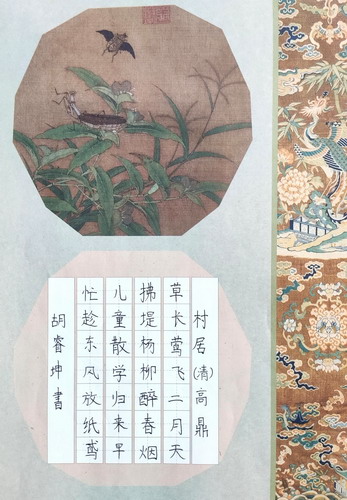 村居(清)高鼎
草长莺飞二月天
拂堤杨柳醉春烟
儿童散学归来早
忙趁东风放纸鸢
胡睿坤书